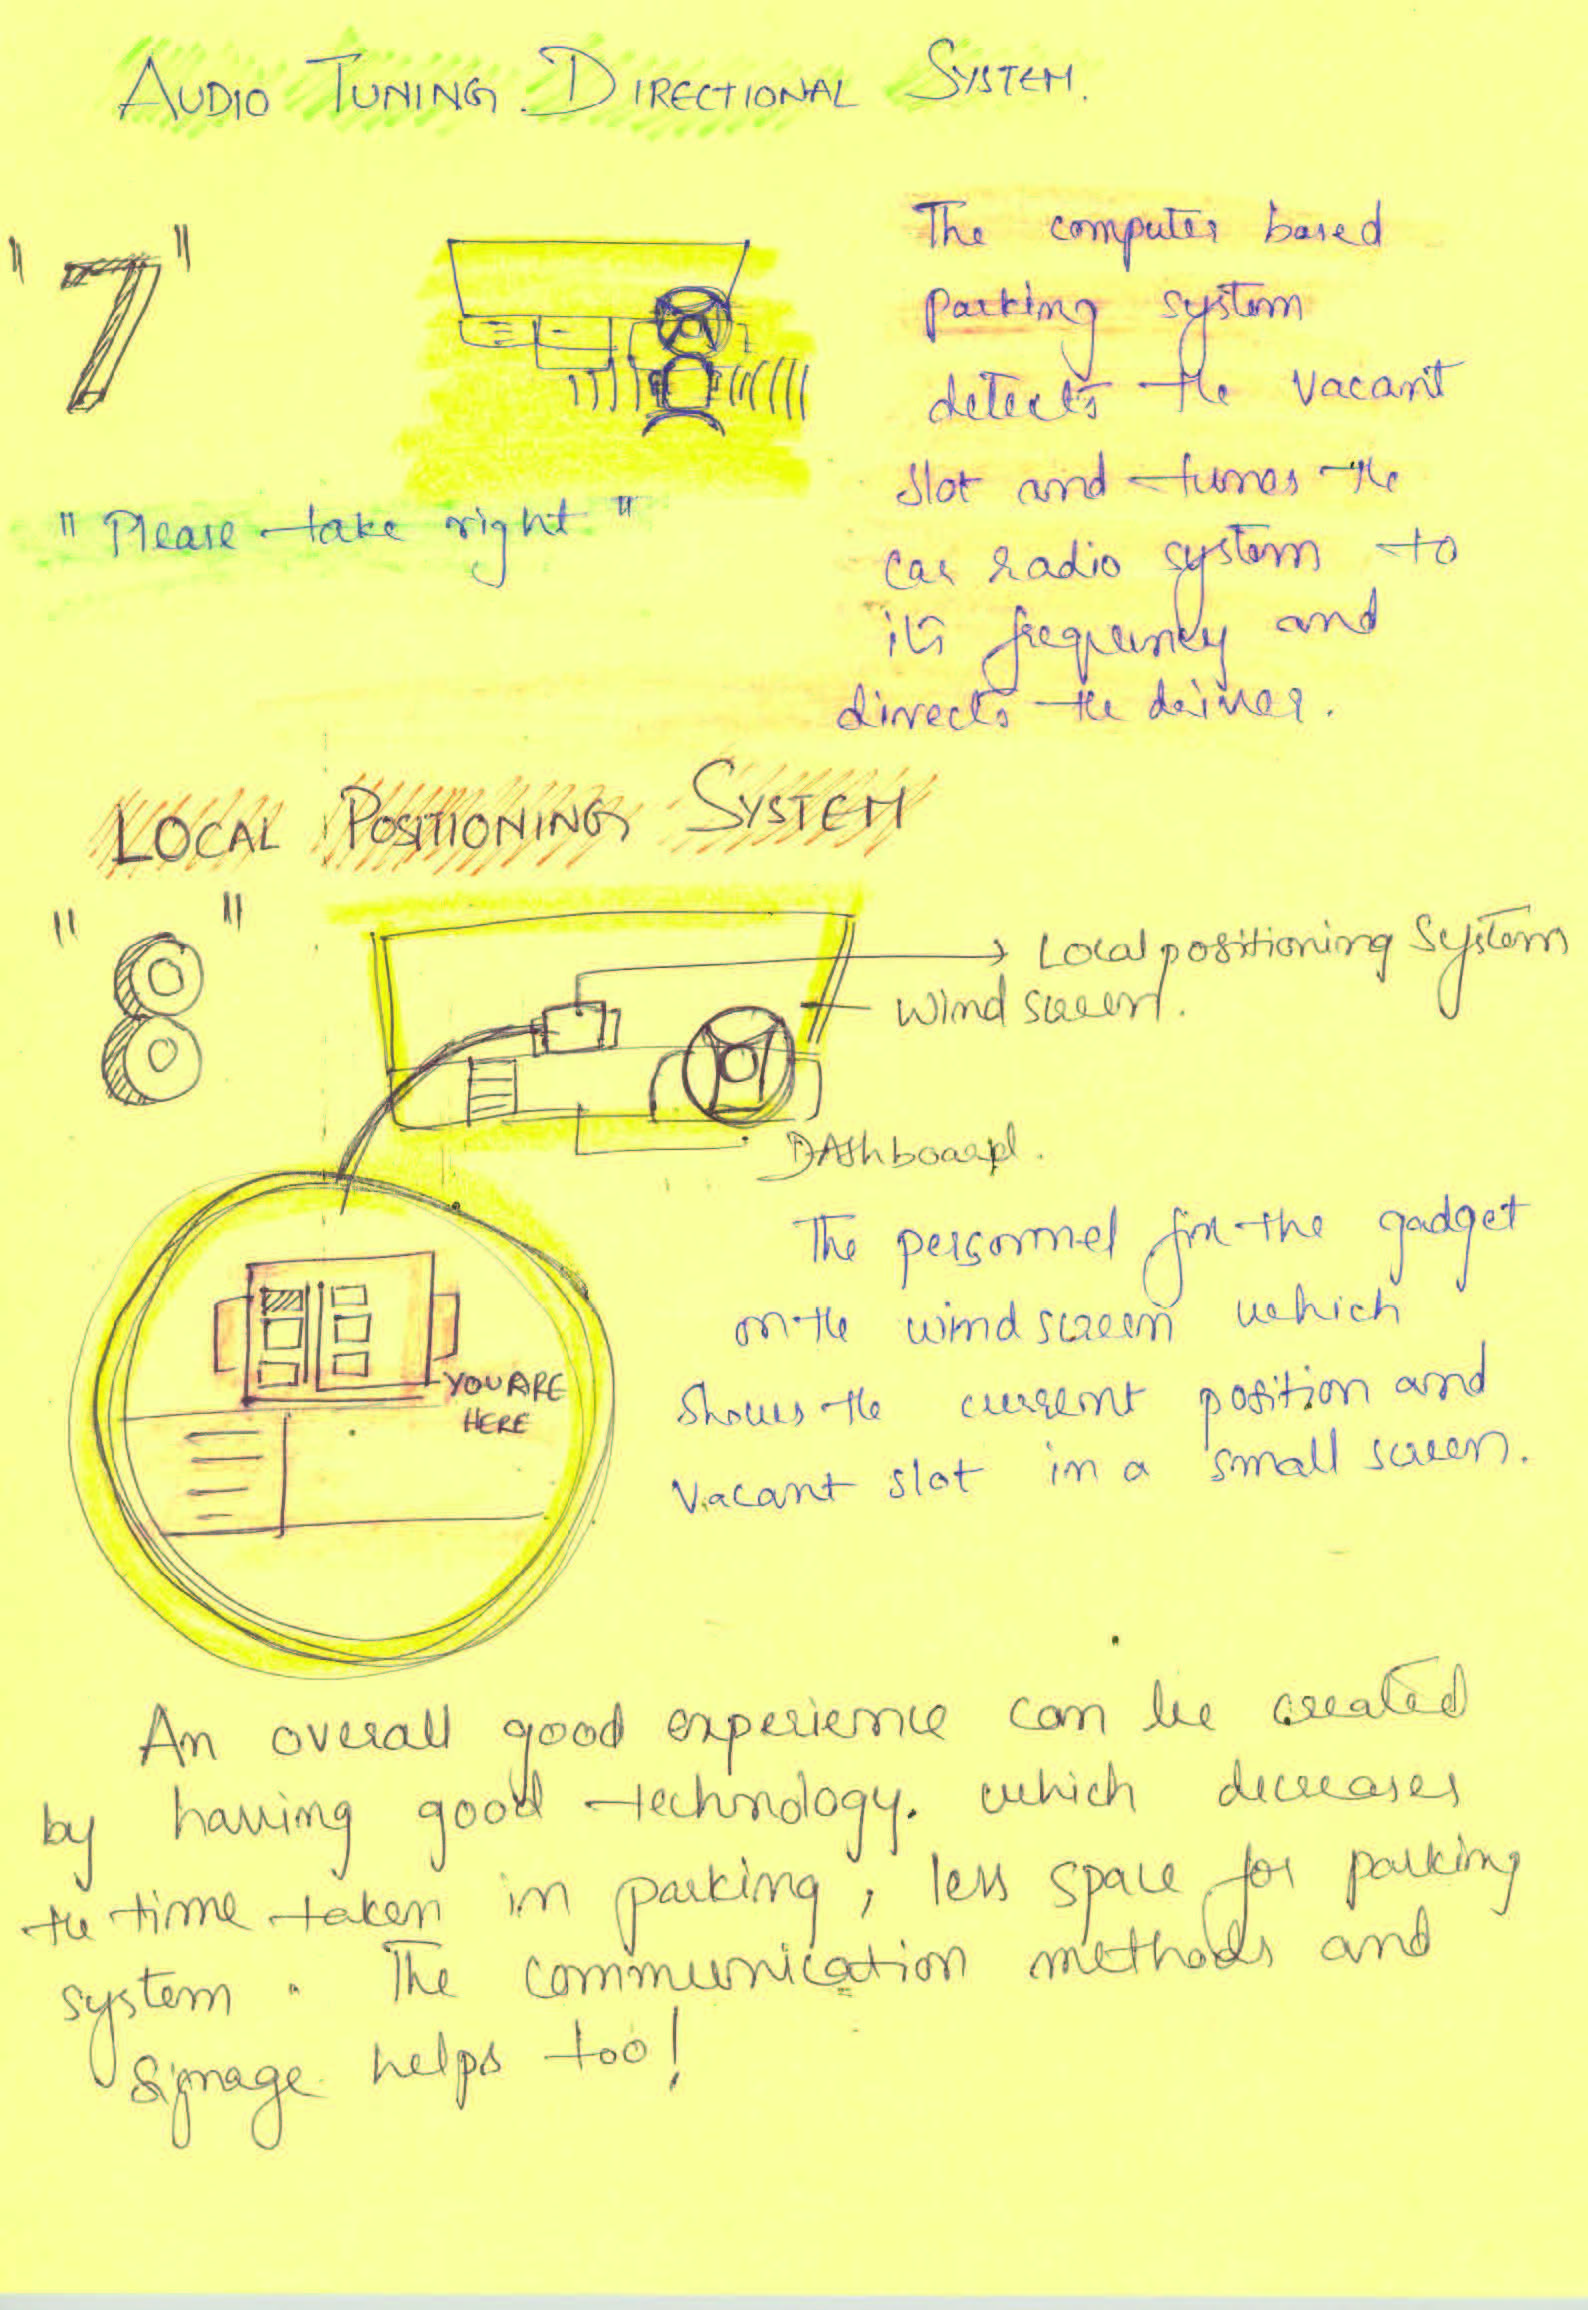 AUDIO TUNING. DIRECTIONAL SYSTEM.
"7"
The computer based
parking system
detects the vacant
slot and tunes the
car radio system to
its frequency and
directs the driver.
"Please take right"
LOCAL POSITIONING SYSTEM
"8"
Local positioning System
Wind screen.
DAshboard.
The personnel fix the gadget
on the wind screen which
shows the current position and
vacant slot in a small screen.
YOU ARE
HERE
An overall good experience can be created
by having good technology. which decreases
the time taken in parking, less space for parking
system. The communication methods and
signage helps too!